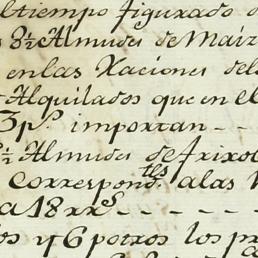 el tiempo figurado
8½ Almudes de Maiz
en las Raciones de
Alquilados que en el
3 p.s importan - -
½ Almudes de frixol
Correspond.tes a las
a 18 rr.s - - - - -
y 6 potros los